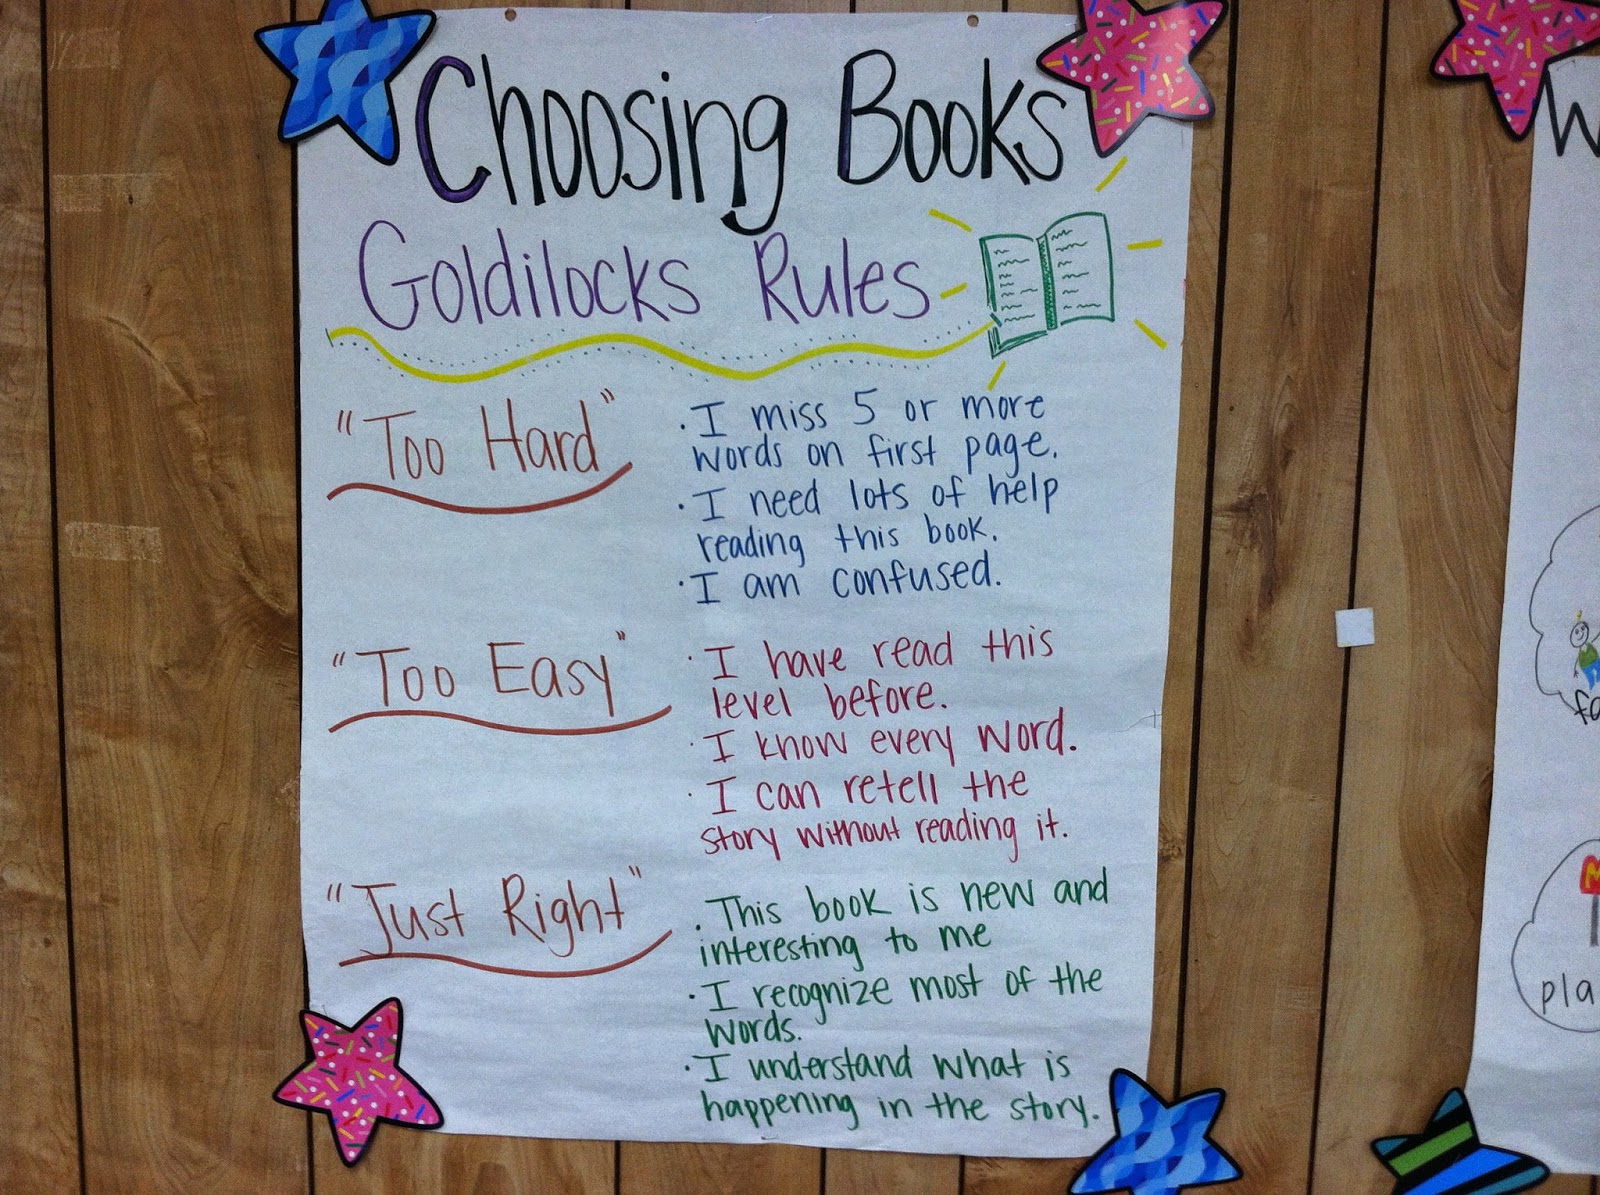 Choosing Books
Goldilocks Rules
"Too Hard"
· I miss 5 or more
words on first page.
· I need lots of help
reading this book.
· I am confused.
"Too Easy"
· I have read this
level before.
· I know every word.
· I can retell the
story without reading it.
"Just Right"
· This book is new and
interesting to me
· I recognize most of the
words.
· I understand what is
happening in the story.
W
fa
pla